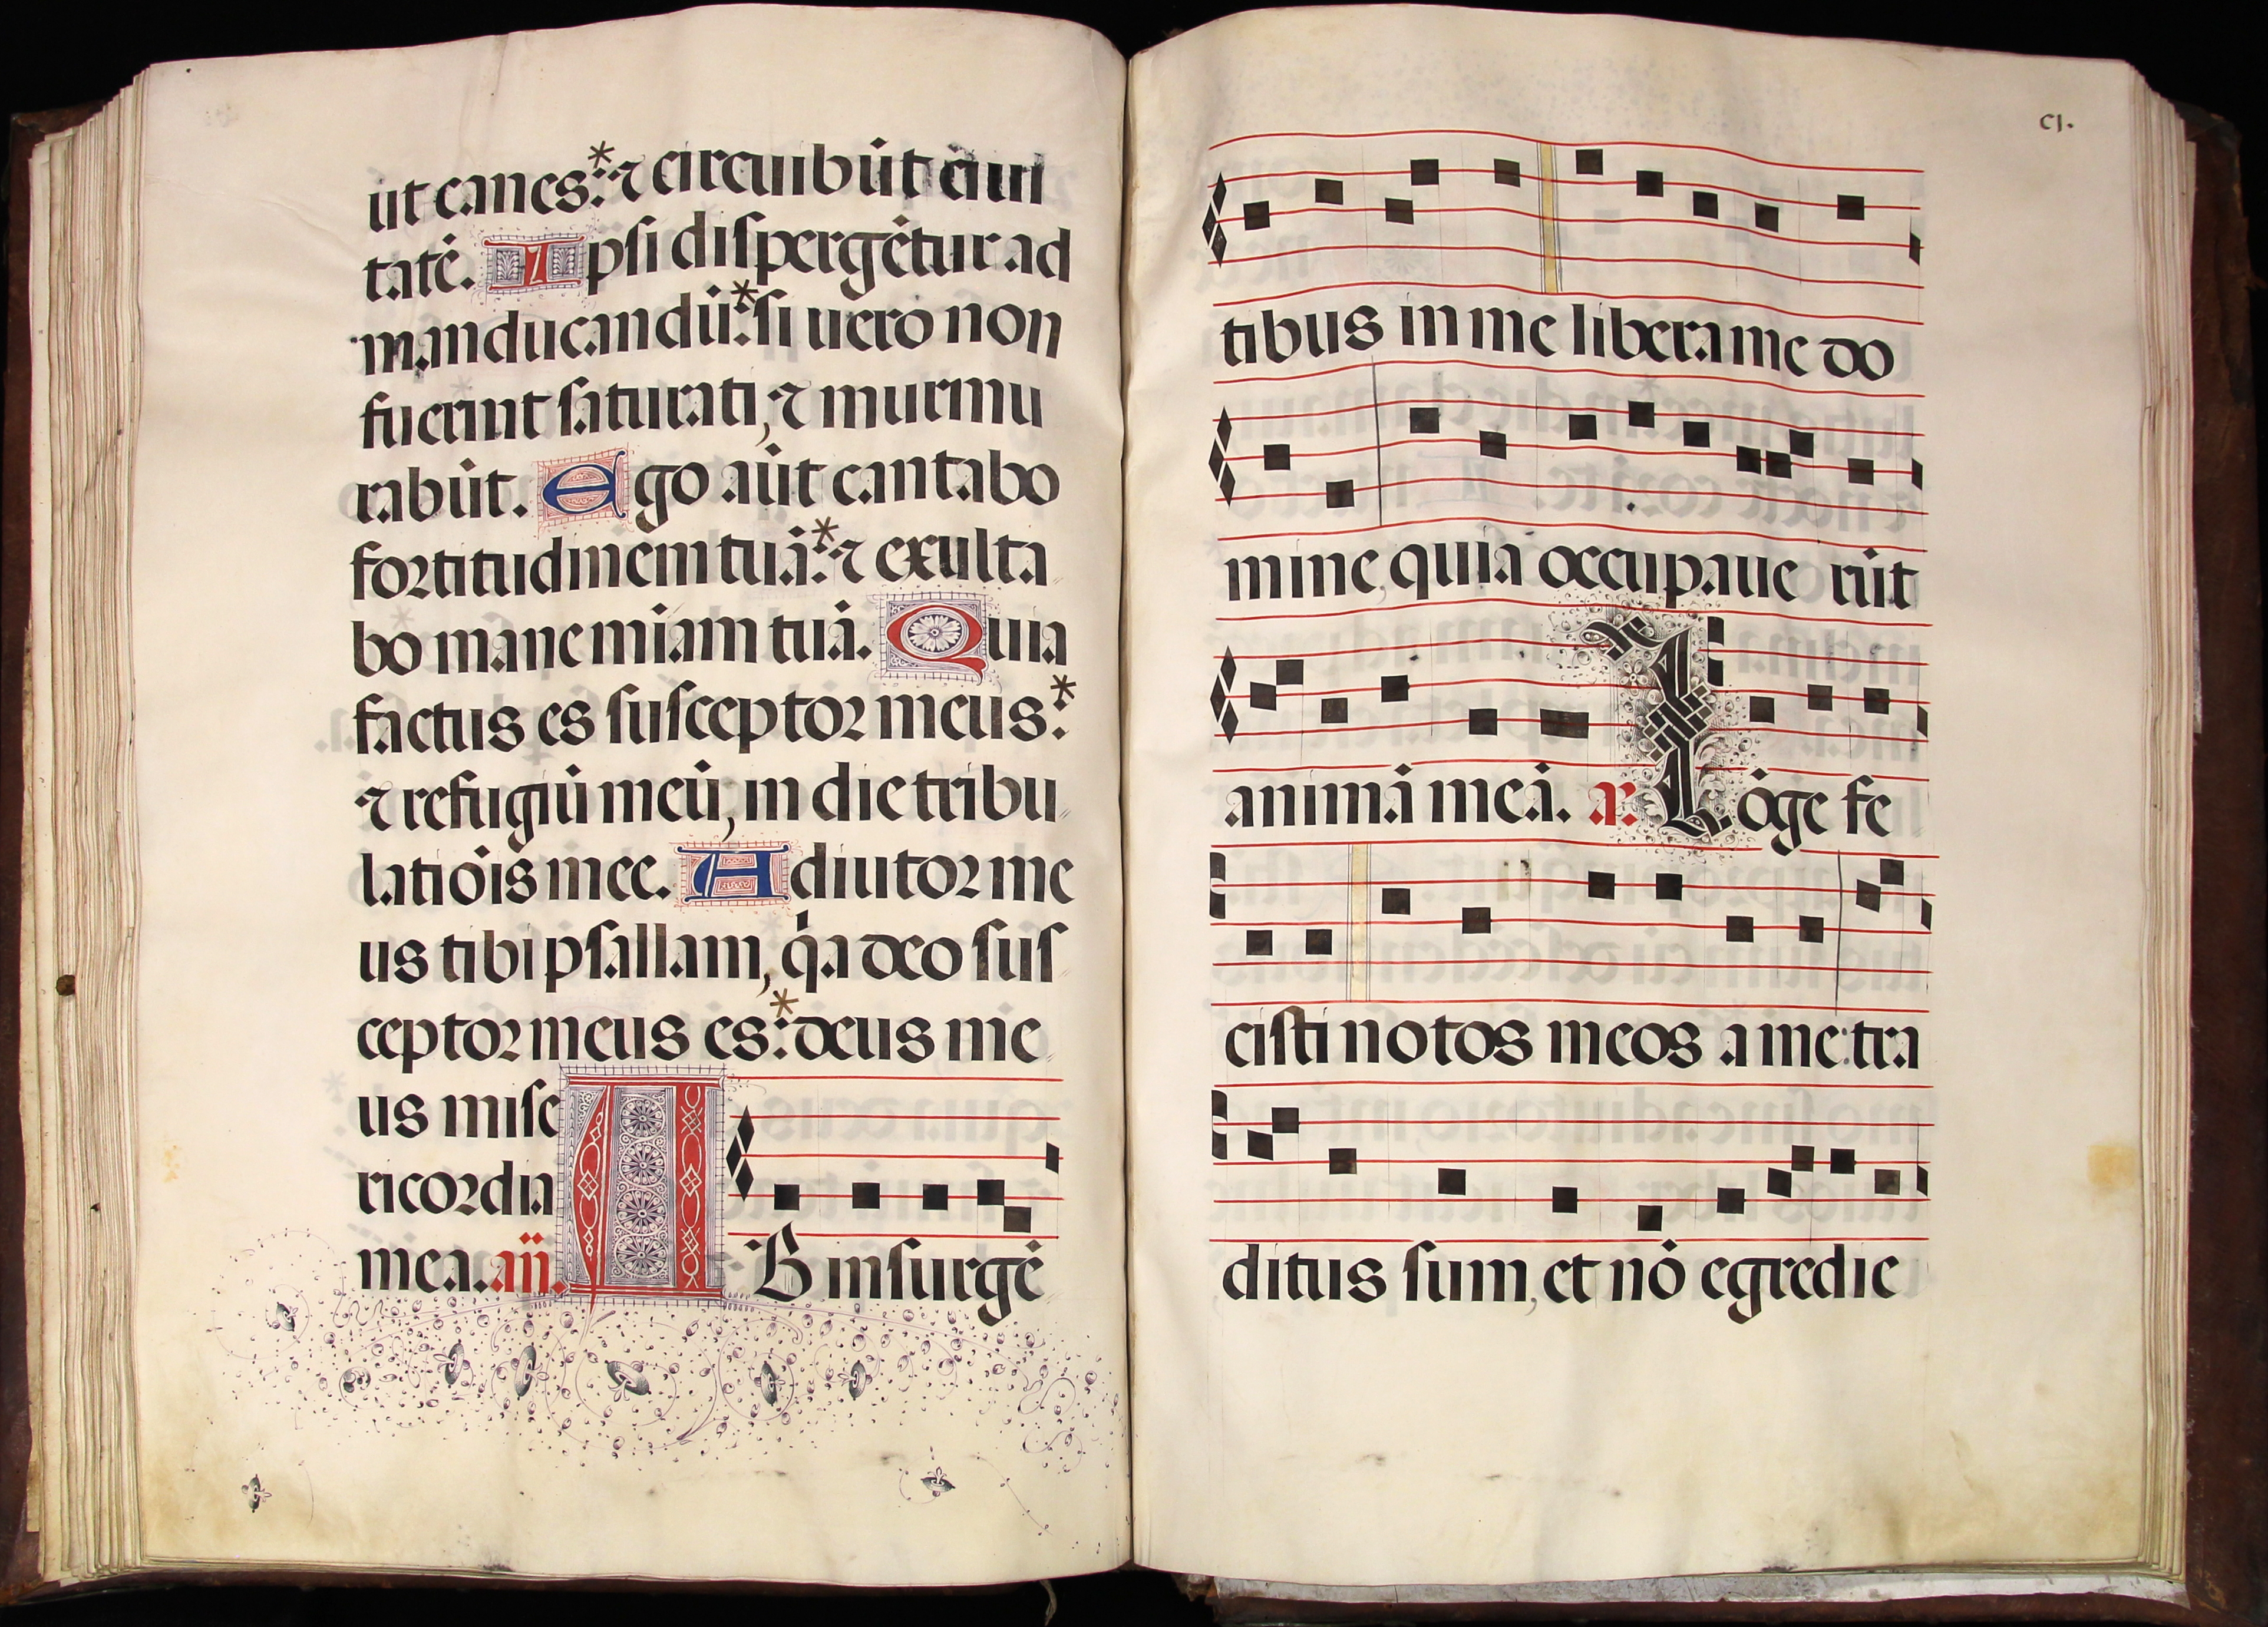 ut canes:* ⁊ circuibūt ciui
tatē. Ipsi dispergētur ad
manducandū:* si uero non
fuerint saturati, ⁊ murmu
rabūt. Ego aūt cantabo
fortitudinem tuā:* ⁊ exulta
bo mane miam tuā. Quia
factus es susceptor meus:*
⁊ refugiū meū, in die tribu
latiōis mee. Adiutor me
us tibi psallam, q̇a deo sus
ceptor meus es:* deus me
us mise
ricordia
mea. añ. AB insurgē
cj.
tibus in me libera me do
mine, quia occupaue rūt
animā meā. a. Lōge fe
cisti notos meos a me: tra
ditus sum, et nō egredie